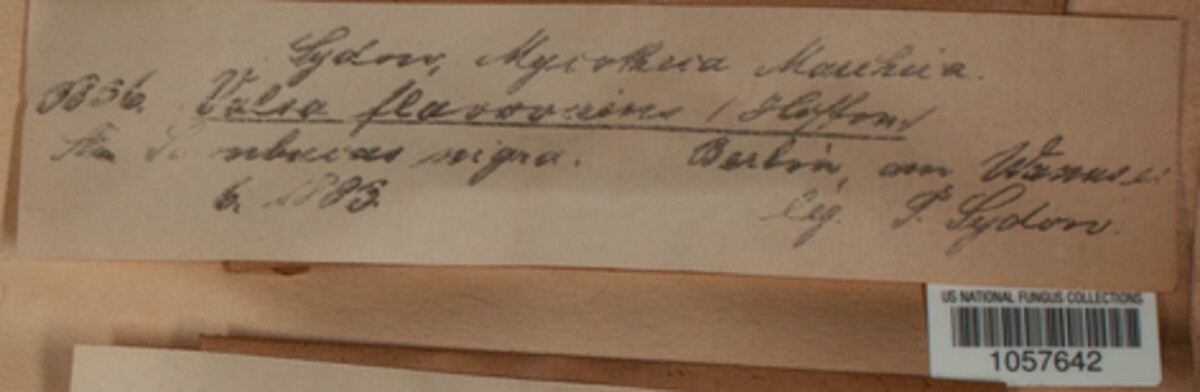 Sydow, Mycotheca Marchica.
Valsa flavovirens (Hoffm)
An Sambucus nigra. Berlin, am Wannsee
6. 1883. leg. P. Sydow.
US NATIONAL FUNGUS COLLECTIONS
1057642